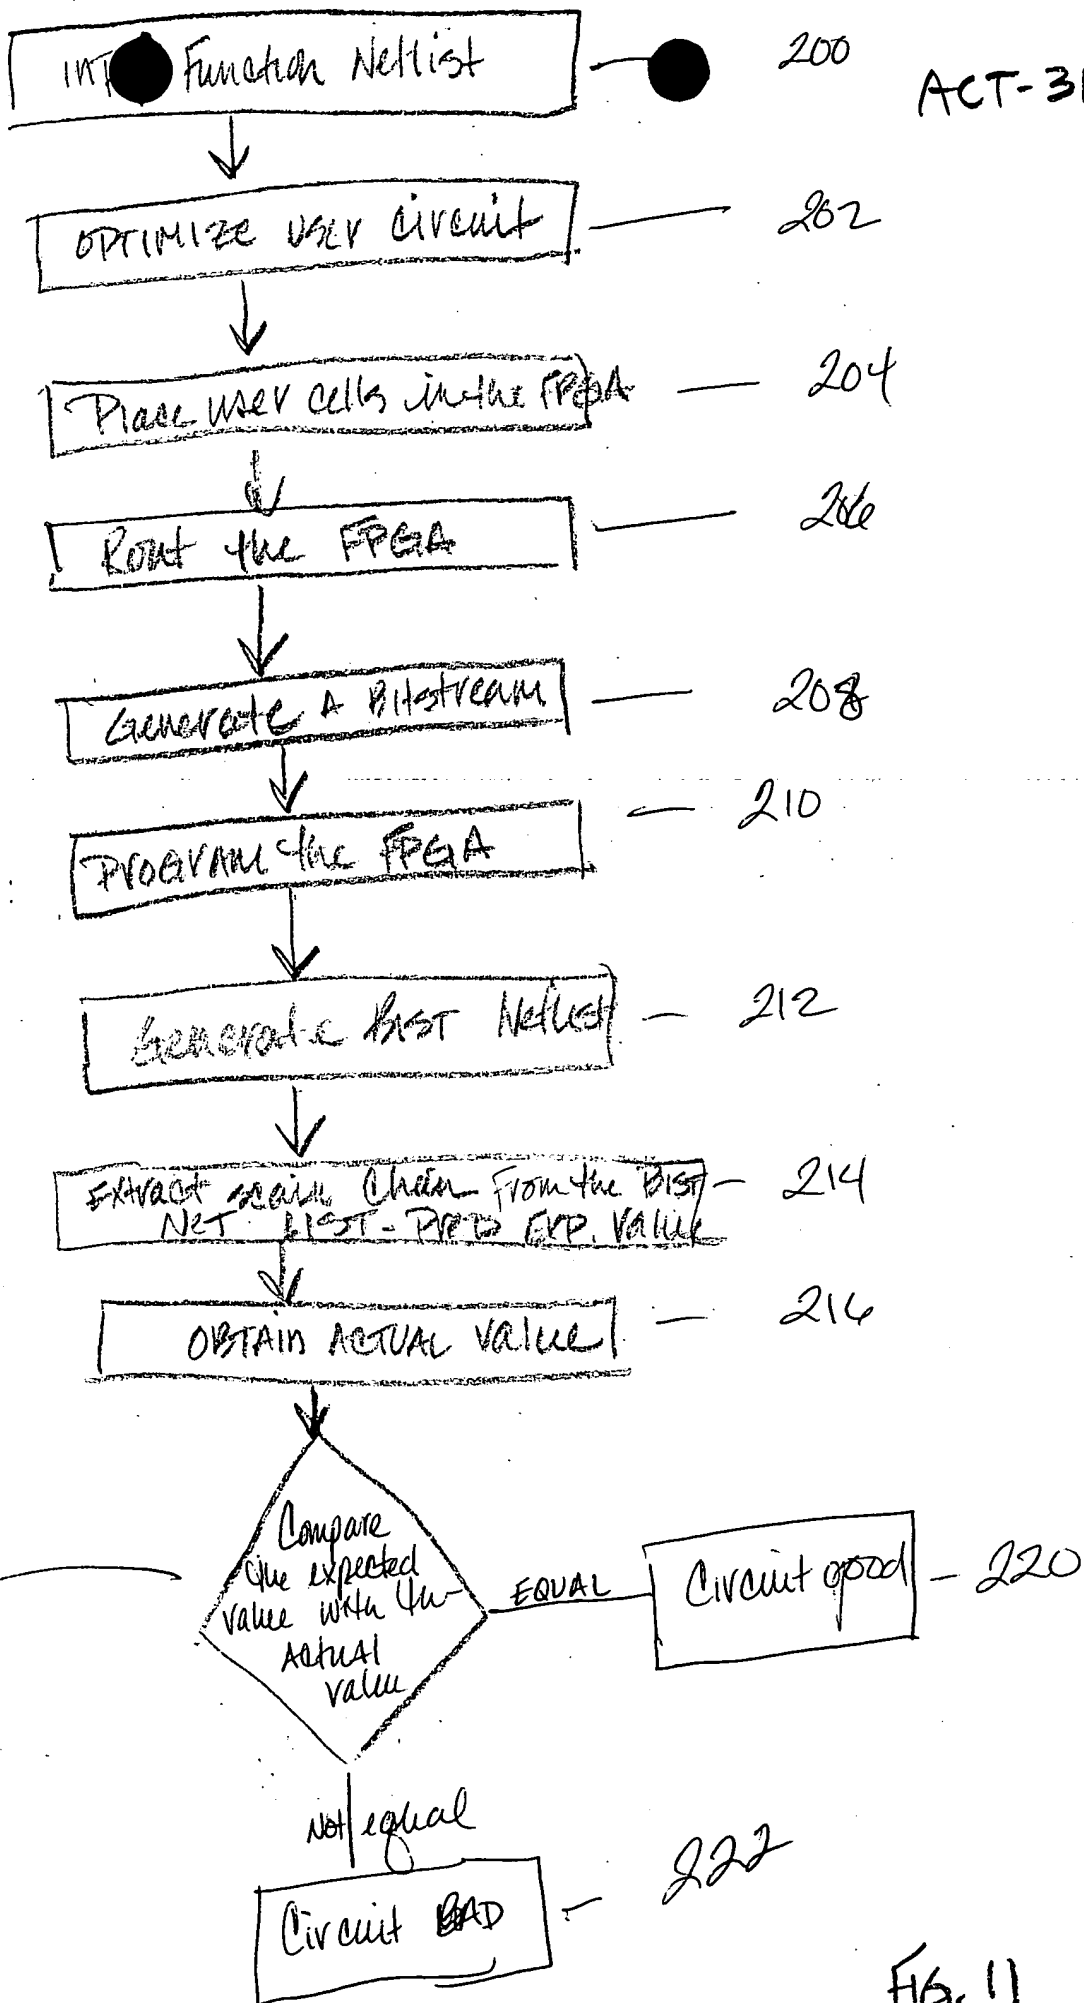 Function Netlist
200
ACT-31
OPTIMIZE USER CIRCUIT
202
Place user cells in the FPGA
204
Rout the FPGA
206
Generate A Bitstream
208
210
PROGRAM the FPGA
Generate BIST Netlist
212
Extract scan Chain From the BIST
214
NET LIST - EXP. Value
OBTAIN ACTUAL Value
216
Compare
the expected
value with the
ACTUAL
value
EQUAL
Circuit good
220
Not equal
Circuit BAD
222
FIG. 11